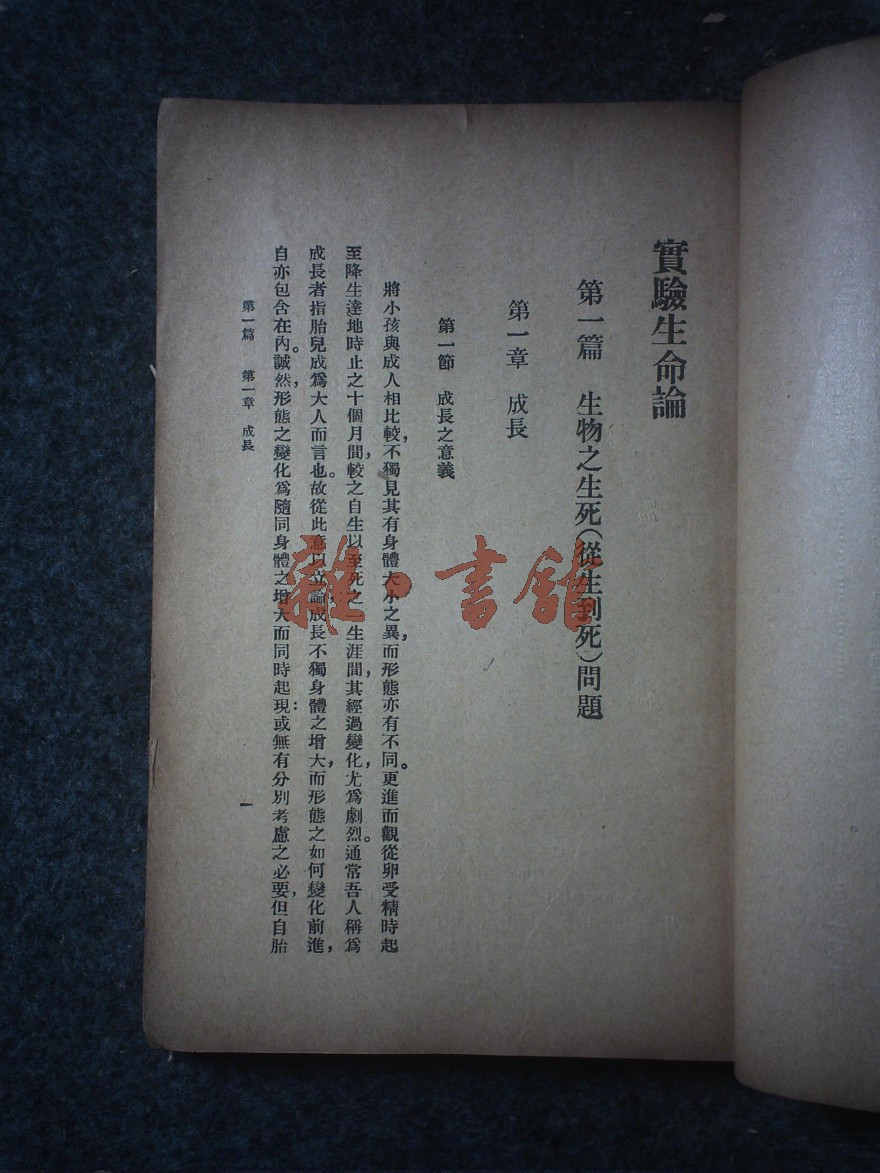 實驗生命論
第一篇 生物之生死(從生到死)問題
第一章 成長
第一節 成長之意義
將小孩與成人相比較,不獨見其有身體大小之異,而形態亦有不同。更進而觀從卵受精時起
至降生達地時止之十個月間,較之自生以至死之一生涯間,其經過變化,尤爲劇烈。通常吾人稱爲
成長者指胎兒成爲大人而言也。故從此意以立論,成長不獨身體之增大,而形態之如何變化前進,
自亦包含在內。誠然,形態之變化爲隨同身體之增大而同時起現:或無有分別考慮之必要,但自胎
第一篇 第一章 成長
一
雜·書館